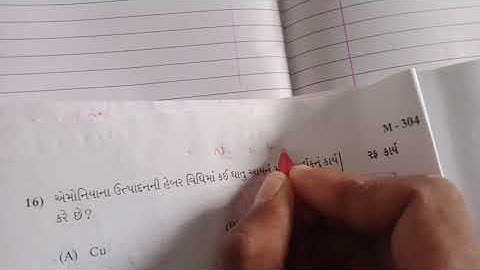 M - 304
રફ કાર્ય
16) એમોનિયાના ઉત્પાદનની હેબર વિધિમાં કઈ ધાતુ આયર્ન કાર્ય
કરે છે ?
(A) Cu